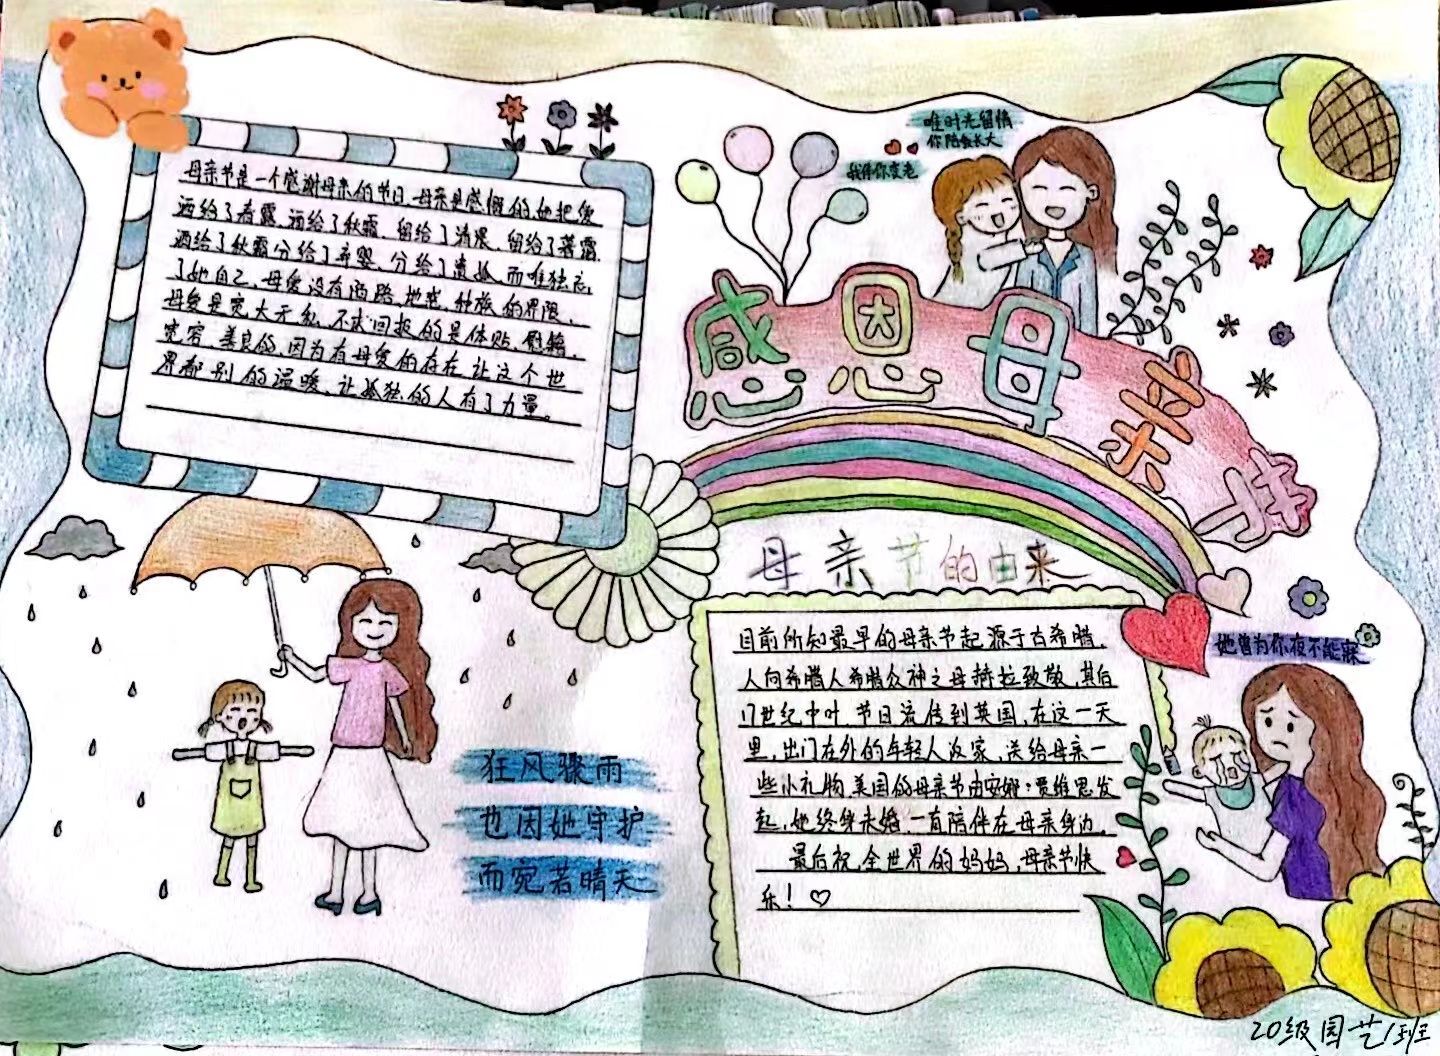 母亲节是一个感谢母亲的节日,母亲是感慨的,她把爱
洒给了春露,洒给了秋霜,留给了清晨,留给了暮霭
洒给了秋霜分给了弃婴,分给了遗孤,而唯独忘
了她自己,母爱没有商路,地域,种族的界限,
母爱是宽大无私,不求回报的是体贴,慰藉,
宽容,善良的,因为有母爱的存在,让这个世
界都别的温暖,让孤独的人有了力量。
唯时光留情
你陪我长大
我伴你变老
感恩母亲节
母亲节的由来
目前所知最早的母亲节起源于古希腊.
人向希腊人希腊众神之母赫拉致敬,其后
17世纪中叶,节日流传到英国,在这一天
里,出门在外的年轻人返家,送给母亲一
些小礼物,美国的母亲节由安娜:贾维思发
起,她终身未婚,一直陪伴在母亲身边.
最后祝,全世界的妈妈,母亲节快
乐! ♡
她曾为你夜不能寐
狂风骤雨
也因她守护
而宛若晴天
20级园艺1班